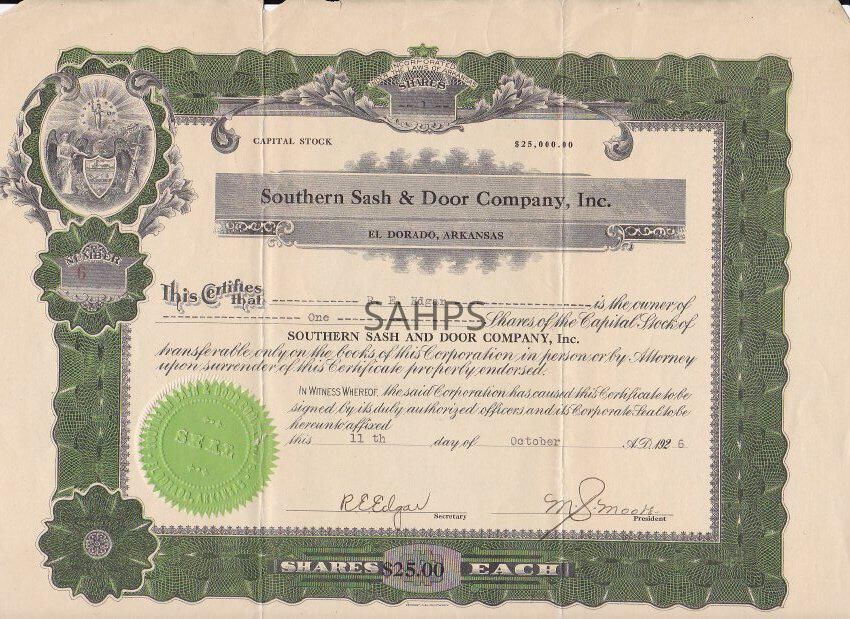 INCORPORATED UNDER
THE LAWS OF ARKANSAS
SHARES
1
CAPITAL STOCK
$25,000.00
Southern Sash & Door Company, Inc.
EL DORADO, ARKANSAS
NUMBER
6
This Certifies that R. E. Edgar is the owner of
One Shares of the Capital Stock of
SOUTHERN SASH AND DOOR COMPANY, Inc.
transferable only on the books of this Corporation in person or by Attorney
upon surrender of this Certificate properly endorsed.
IN WITNESS WHEREOF, the said Corporation has caused this Certificate to be
signed by its duly authorized officers and its Corporate Seal to be
hereunto affixed
this 11 th day of October A.D. 192 6
SEAL
R E Edgar
Secretary
M S. Moore
President
SHARES $25.00 EACH
SAHPS